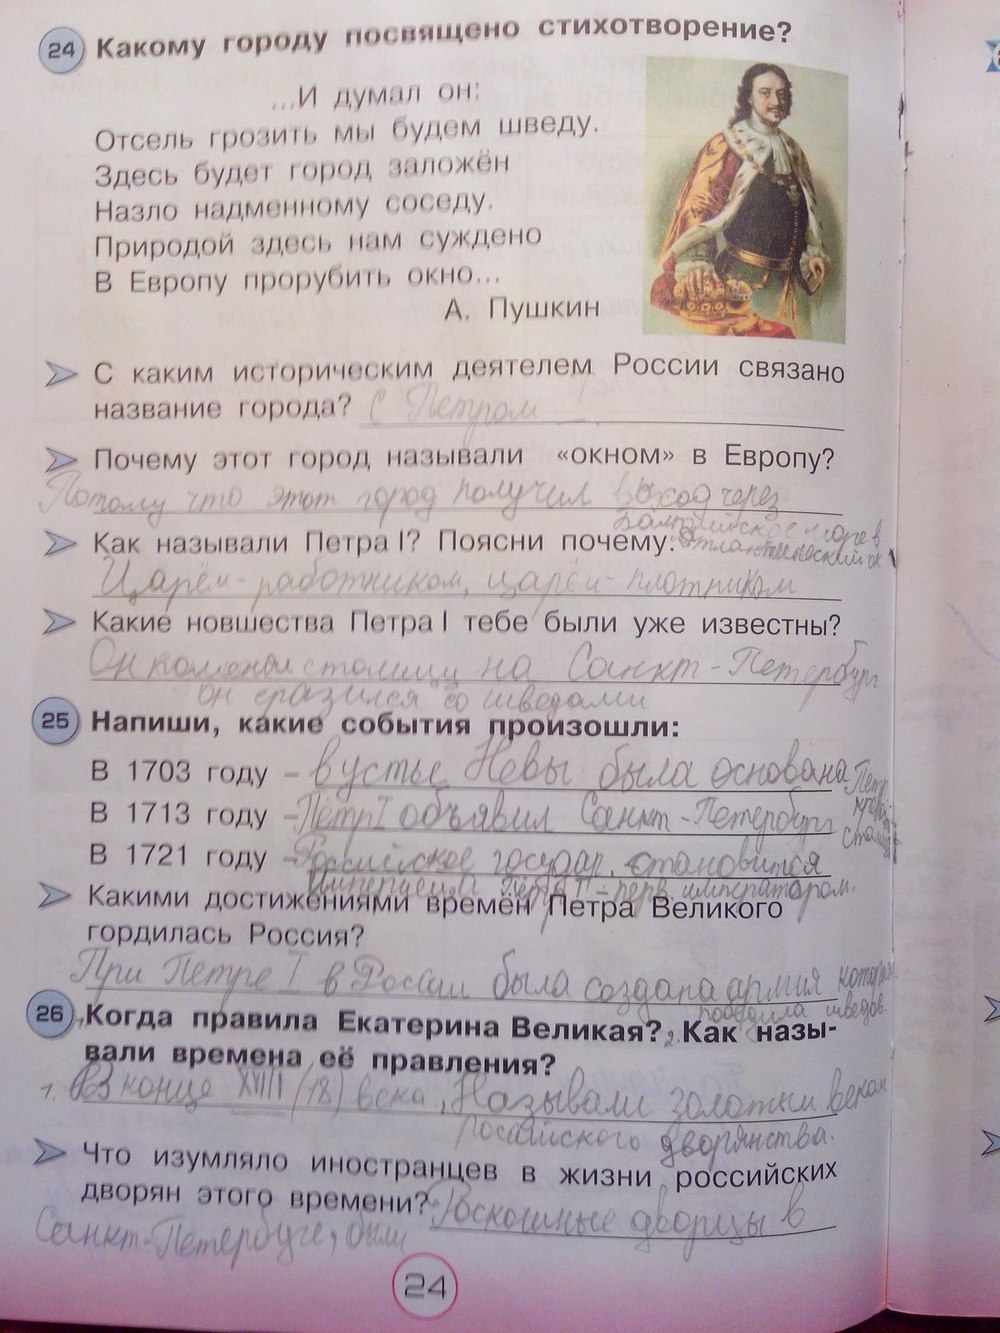 24 Какому городу посвящено стихотворение?
...И думал он:
Отсель грозить мы будем шведу.
Здесь будет город заложён
Назло надменному соседу.
Природой здесь нам суждено
В Европу прорубить окно...
А. Пушкин
С каким историческим деятелем России связано
название города? С Петром I
Почему этот город называли «окном» в Европу?
Потому что этот город получил выход через
Балтийское море в
Как называли Петра I? Поясни почему: Атлантический ок
Царём-работником, царём-плотником
Какие новшества Петра I тебе были уже известны?
Он поменял столицу на Санкт-Петербург
он сразился со шведами
25 Напиши, какие события произошли:
В 1703 году – в устье Невы была основана Петр.
В 1713 году – Пётр I объявил Санкт-Петербург
столи
В 1721 году – Российское государ. становится
Империей а Пётр I - перв. императором.
Какими достижениями времён Петра Великого
гордилась Россия?
При Петре I в России была создана армия которая
победила шведов.
26 Когда правила Екатерина Великая? 2. Как назы-
вали времена её правления?
1. В конце XVIII (18) века, Называли золотым веком
российского дворянства.
Что изумляло иностранцев в жизни российских
дворян этого времени? Роскошные дворцы в
Санкт-Петербурге, были
24